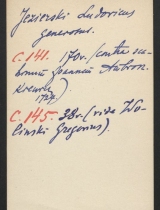 Jezierski Ludovicus
generosus.
C. 141. 170v. (contra su-
Joannis Ambros.
1724).
C. 145. 38v. (vide Wo-
linski Gregorius).